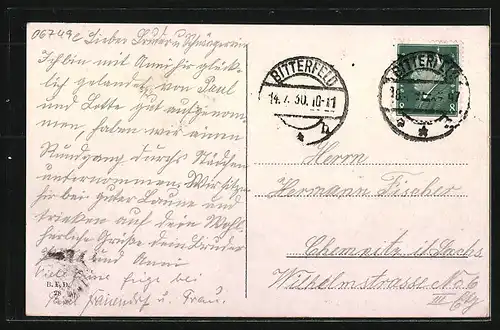 06749e
Lieber Bruder u Schwägerin
Ich bin mit Anni hier glück-
lich gelandet, von Paul
und Lotte gut aufgenom-
men, haben wir einen
Rundgang durchs Städtchen
unternommen. Wir sitzen
hier bei guter Laune und
trinken auf dein Wohl.
herzliche Grüße dein Bruder
und Anni
Viele Grüße
u. Frau.
BITTERFELD
14.7.30. 10-11
h
BITTERFELD
8 8
Herrn
Hermann Fischer
Chemnitz i/Sachs
Wilhelmstrasse No 6
III Etg